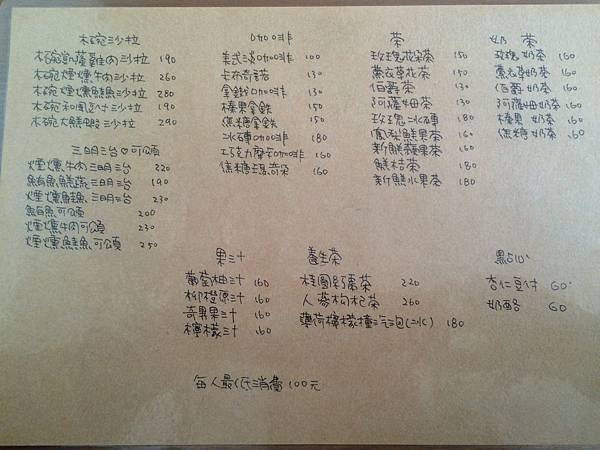 木碗沙拉
木碗凱薩雞肉沙拉 190
木碗煙燻牛肉沙拉 260
木碗煙燻鮭魚沙拉 280
木碗和風豆付沙拉 190
木碗大鮮蝦沙拉 290
三明治♡可頌
煙燻牛肉三明治 220
鮪魚鮮蔬三明治 190
煙燻鮭魚三明治 230
鮪魚可頌 200
煙燻牛肉可頌 230
煙燻鮭魚可頌 250
咖啡
美式咖啡 100
卡布奇諾 130
拿鐵咖啡 130
榛果拿鐵 150
焦糖拿鐵 150
冰磚咖啡 180
巧克力摩卡咖啡 160
焦糖瑪奇朵 160
茶
玫瑰花朵茶 150
薰衣草花茶 150
伯爵茶 130
阿薩姆茶 130
玫瑰冰磚 180
鳳梨鮮果茶 160
新鮮蘋果茶 160
鮮桔茶 180
新鮮水果茶 180
奶茶
玫瑰奶茶 160
薰衣草奶茶 160
伯爵奶茶 160
阿薩姆奶茶 160
榛果奶茶 160
焦糖奶茶 160
果汁
葡萄柚汁 160
柳橙原汁 160
奇異果汁 160
檸檬汁 160
養生茶
桂圓紅棗茶 220
人蔘枸杞茶 260
薄荷檸檬撞汽泡(冰) 180
點心
杏仁豆付 60
奶酪 60
每人最低消費100元